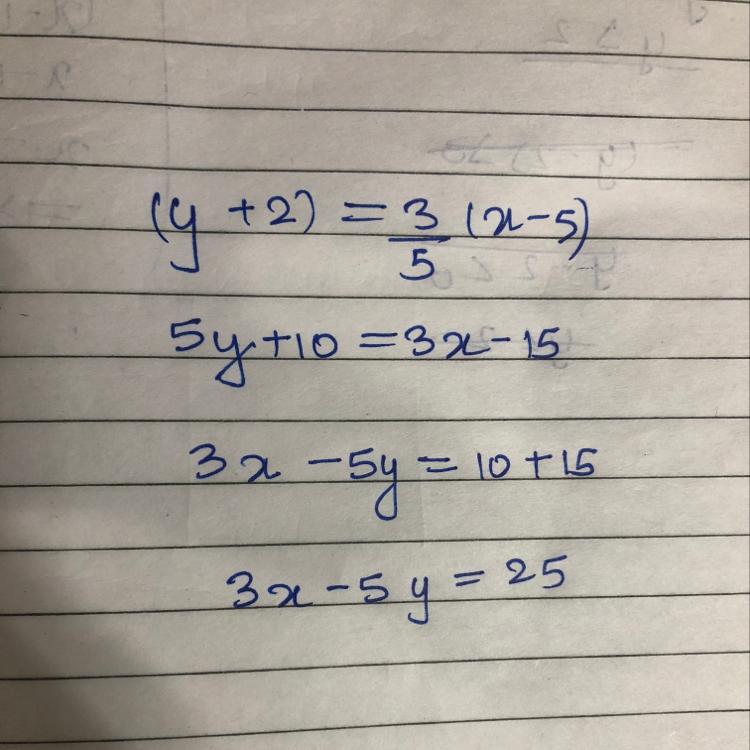 (y + 2) = 3/5 (x - 5)
5y + 10 = 3x - 15
3x - 5y = 10 + 15
3x - 5y = 25